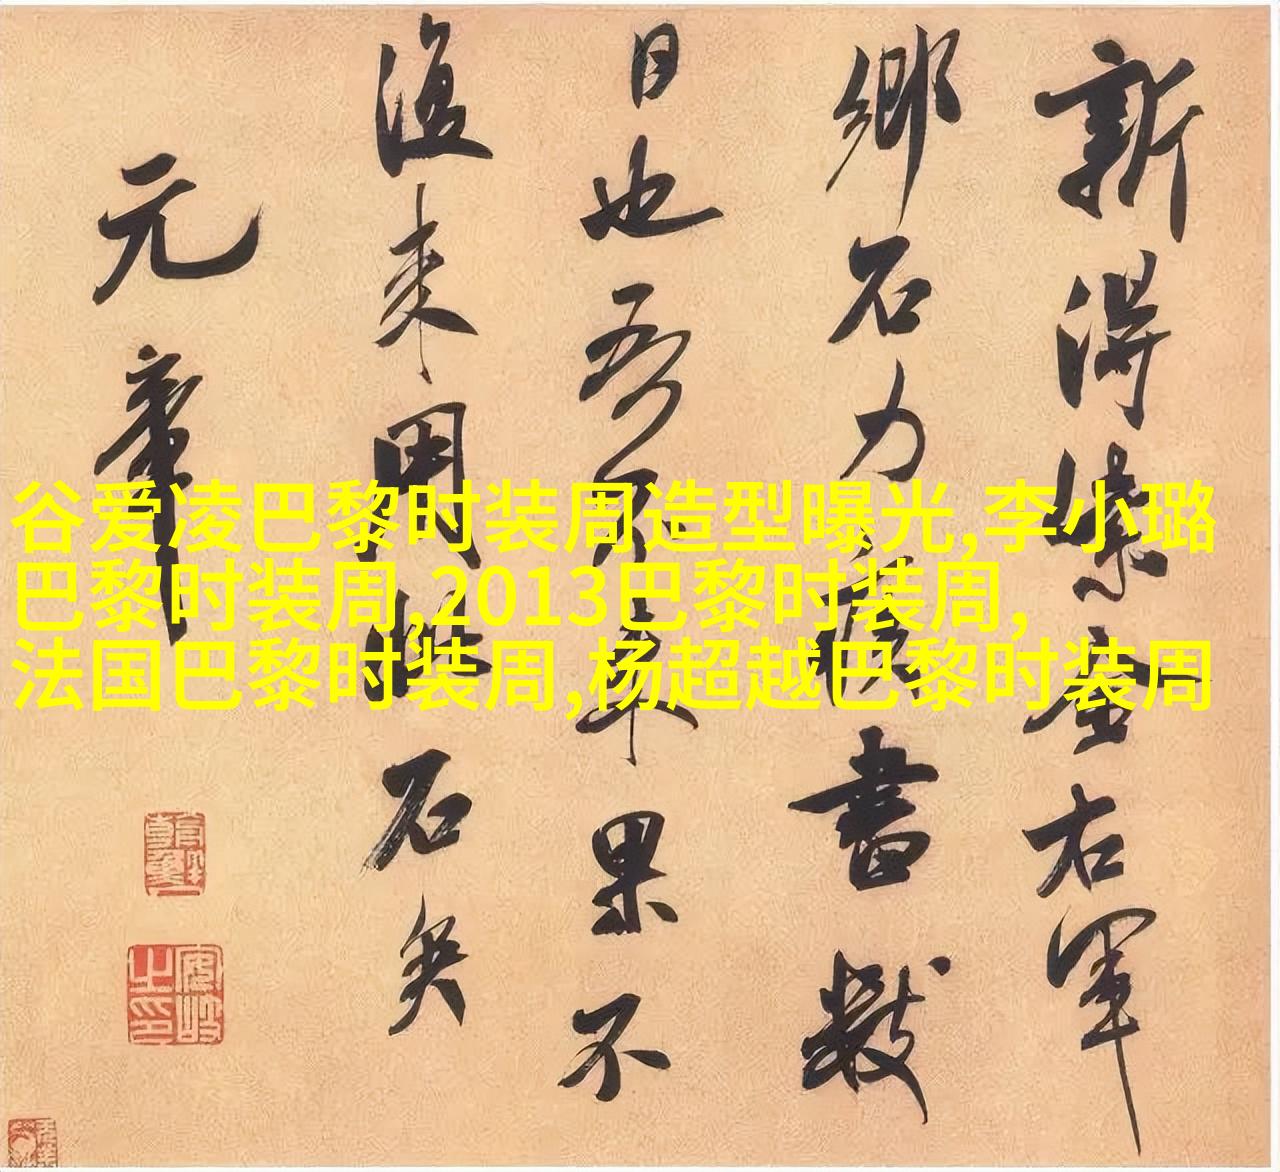 新得紫金右軍
鄉石力疾書數
日也吾不果不
復来用此石矣
元章
谷爱凌巴黎时装周造型曝光,李小璐
巴黎时装周,2013巴黎时装周,
法国巴黎时装周,杨超越巴黎时装周